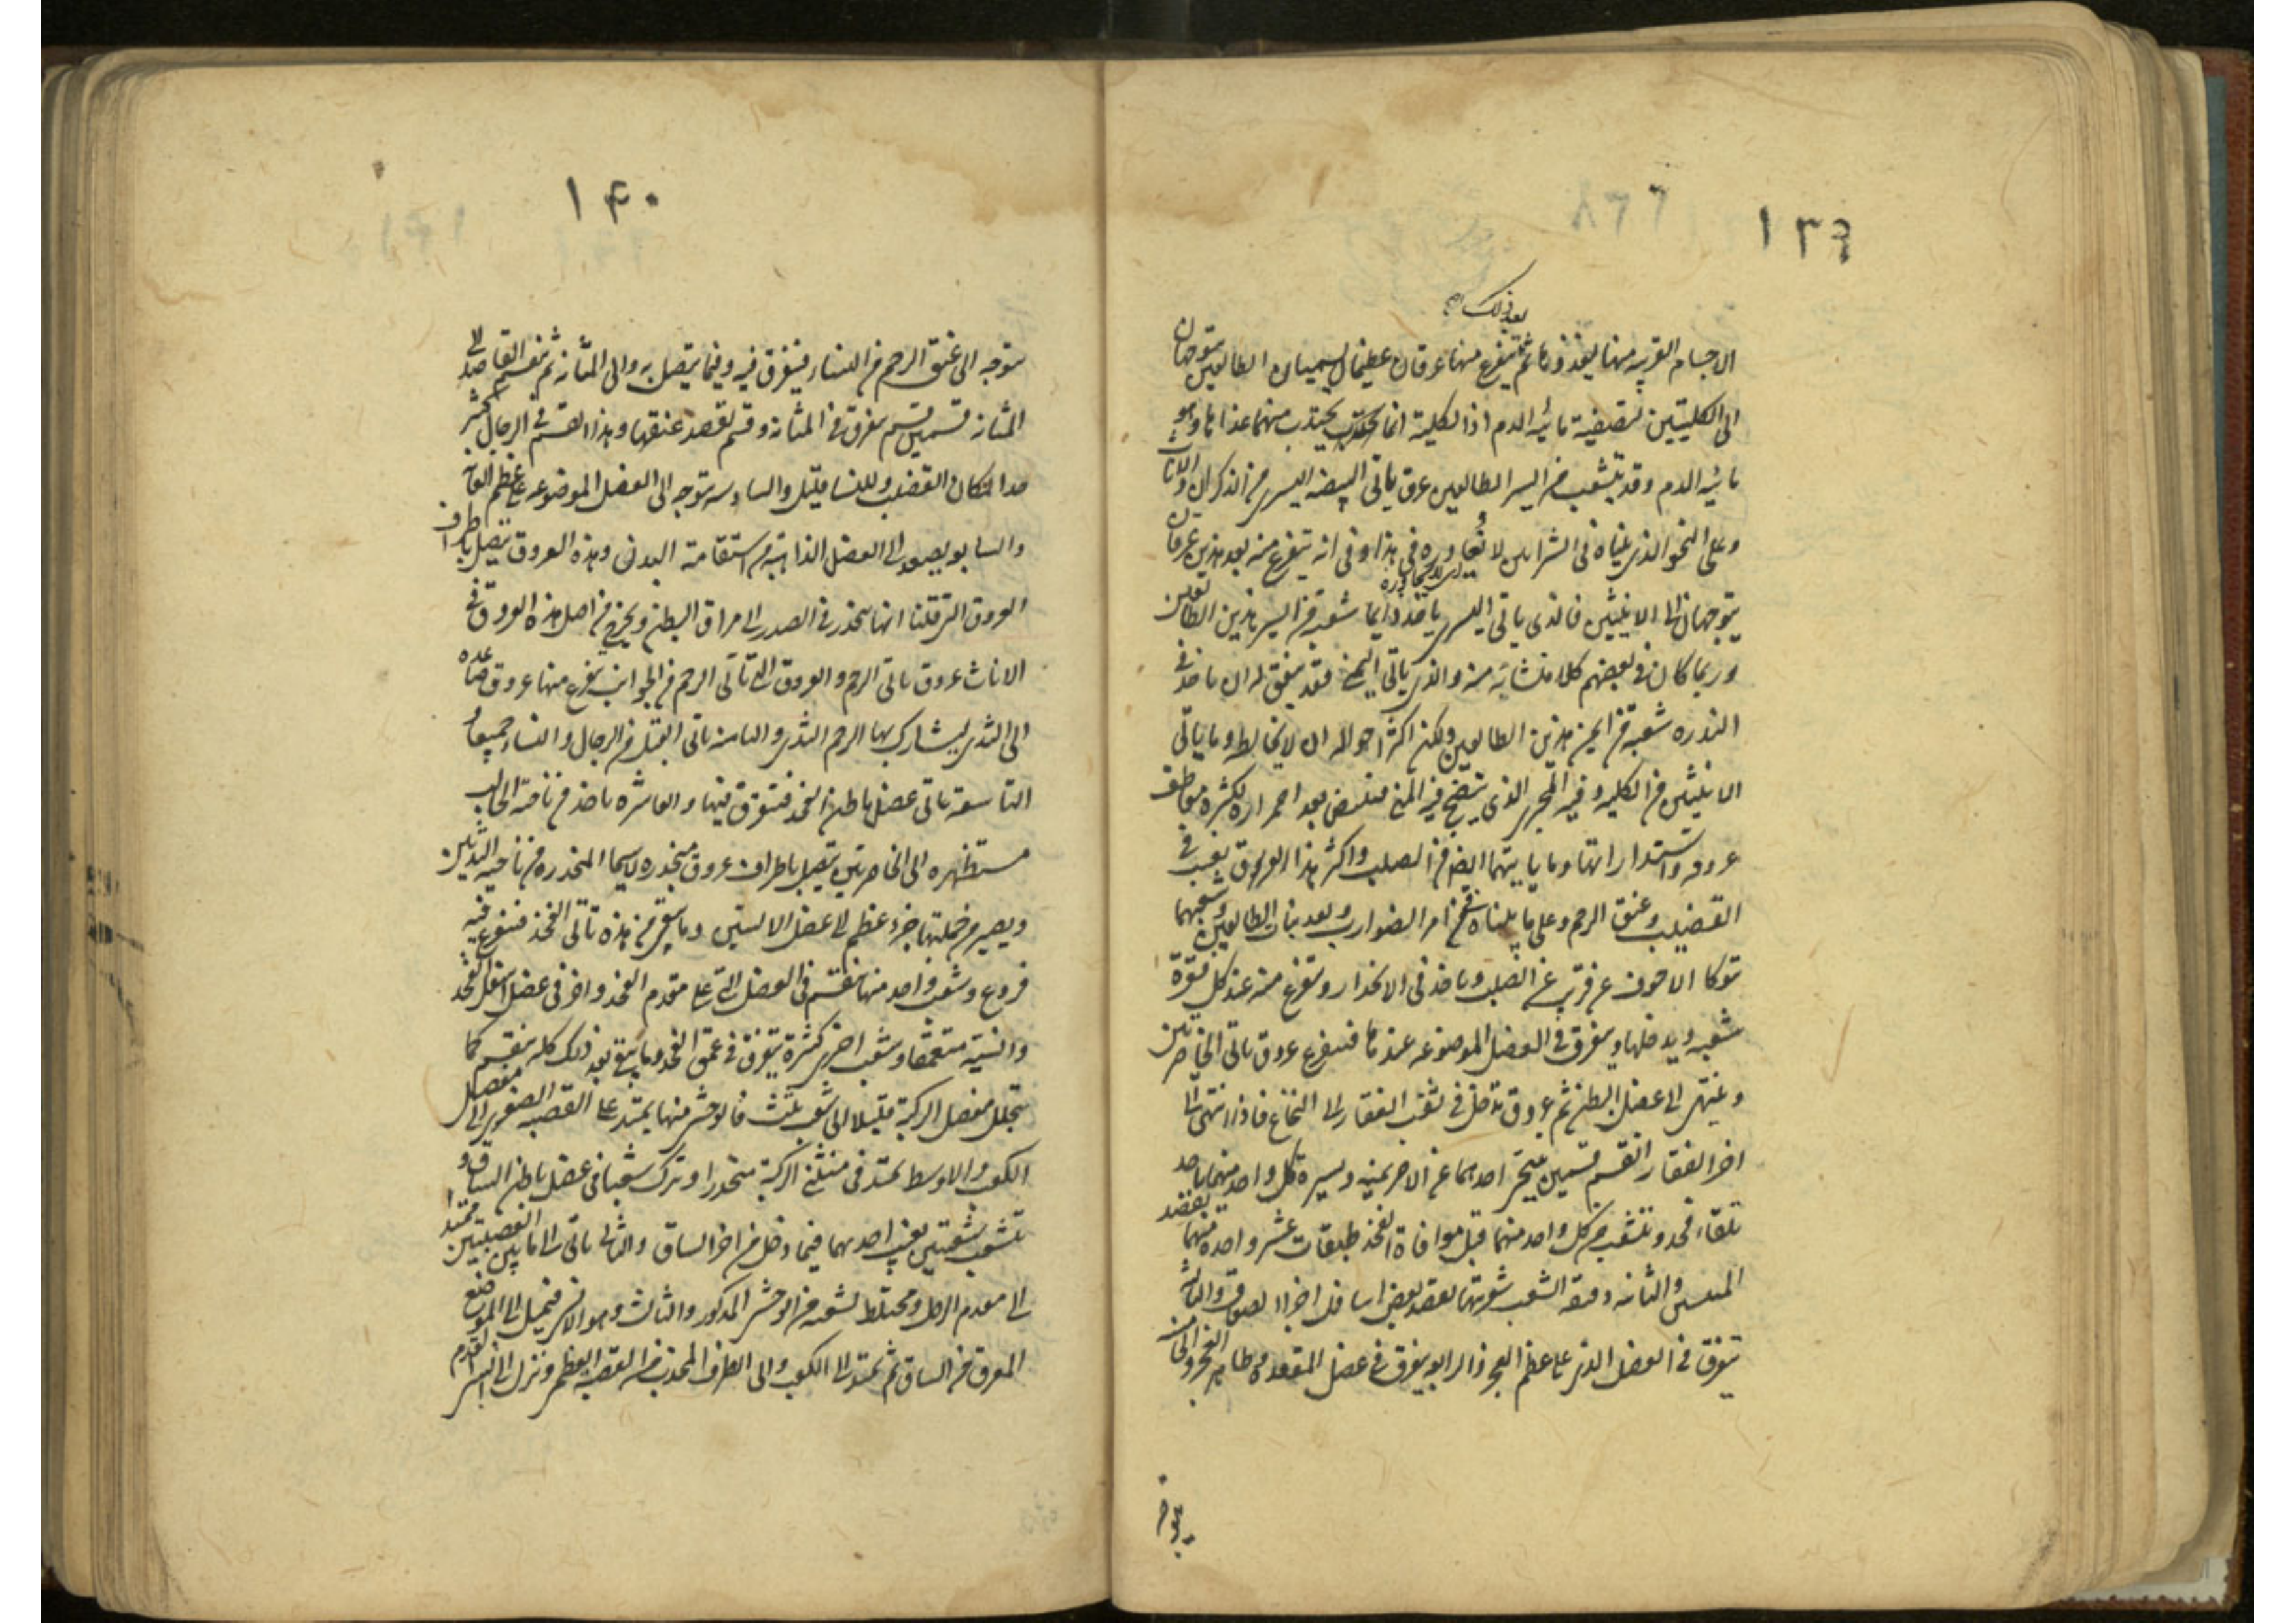 ١٣٩
بعد ذلك
الاجسام القريبه منها ليغذوها ثم يتفرع منها عرقان عظيمان يسميان الطالعين يتوجهان
الى الكليتين لتصفية مائية الدم اذ الكلية انما تجتذب منهما غذاها وهو
مائية الدم وقد يتشعب من ايسر الطالعين عرق ياتى البيضه اليسرى من الذكران والاناث
وعلى النحو الذى بيناه فى الشرائين لا يغادره فى هذا وفى انه يتفرع منه بعد هذين عرقان
يتوجهان الى الانثيين فالذى ياتى اليسرى ياخذ دايما شعبة من ايسر هذين الطالعين
وربما كان فى بعضهم كلا منشائه منه والذى ياتى اليمنى فقد يتفق له ان ياخذ فى
الندره شعبة من ايمن هذين الطالعين ولكن اكثر احواله ان لا يخالطه وما ياتى
الانثيين من الكليه وفيه المجرى الذى ينضج فيه المنى فيبيض بعد احمراره لكثرة معاطف
عروقه واستدارتها وما ياتيهما ايضا من الصلب واكثر هذا العروق يغيب فى
القضيب وعنق الرحم وعلى ما بيناه من امر الضوارب وبعد نبات الطالعين وشعبهما
يتوكا الاجوف عن قريب على الصلب وياخذ فى الانحدار ويتفرع منه عند كل فقرة
شعبه ويدخلها ويتفرق فى العضل الموضوعه عندها فيتفرع عروق تاتى الخاصرتين
وينتهى الى عضل البطن ثم عروق تدخل فى ثقب الفقار الى النخاع فاذا انتهى الى
اخر الفقار انقسم قسمين يتنحى احدهما عن الاخر يمينه ويسيرة كل واحد منهما ياخذ
تلقاء فخد ويتشعب من كل واحد منهما قبل موافاة الفخذ طبقات عشر واحدة منهما يقصد
المتنين والثانيه دقيقه الشعب شعريتها يقصد بعض اسافل اجزاء الصفاق والثالث
يتفرق فى العضل الذى على عظم العجز والرابع يتفرق فى عضل المقعده وظاهر العجز والخامسة
يتوجه
١٤٠
يتوجه الى عنق الرحم من النساء فيتفرق فيه وفيما يتصل به والى المثانه ثم ينقسم القاصد الى
المثانه قسمين قسم يتفرق فى المثانه وقسم يقصد عنقها وهذا القسم فى الرجال كثير
جدا لمكان القضيب وللنسا قليل والسادسه يتوجه الى العضل الموضوعه على عظم العانه
والسابع يصعد الى العضل الذاهبة من استقامة البدن وهذه العروق يتصل باطراف
العروق التى قلنا انها تنحدر فى الصدر الى مراق البطن ويخرج من اصل هذه العروق فى
الاناث عروق تاتى الرحم والعروق التى تاتى الرحم من الجوانب يتفرع منها عروق صاعده
الى الثدى ليشارك بها الرحم الثدى والثامنه تاتى القبل من الرجال والنساء جميعا و
التاسعة تاتى عضل باطن الفخذ فتتفرق فيها والعاشره ياخذ من ناحية الحالب
مستظهره الى الخاصرتين يتصل باطراف عروق منحدره لاسيما المنحدره من ناحيه الثديين
ويصير من جملتها جزء عظيم الى عضل الاليتين وما يبقى من هذه تاتى الفخذ فيتفرع فيه
فروع وشعب واحد منها ينقسم فى العضل التى على مقدم الفخذ واخر فى عضل اسفل الفخذ
وانسيه متعمقا وشعب اخرى كثيرة يتفرق فى عمق الفخد وما يبقى بعد ذلك كله ينقسم كما
يتحلل مفصل الركبة قليلا الى شعب ثلث فالوحشى منها يمتد على القصبه الصغرى الى مفصل
الكعب والاوسط يمتد فى منثنى الركبة منحدرا ويترك شعبا فى عضل باطن الساق و
يتشعب شعبتين يغيب احدهما فيما دخل من اخر الساق والثانى ياتى الى ما بين القصبتين ممتدا
الى مقدم الرجل ومختلط لشعبه من الوحشى المذكور والثالث وهو الانسى فيميل الى الموضع
المعرق من الساق ثم يمتد الى الكعب والى الطرف المحدب من القصبه العظمى وينزل الى انسى القدم